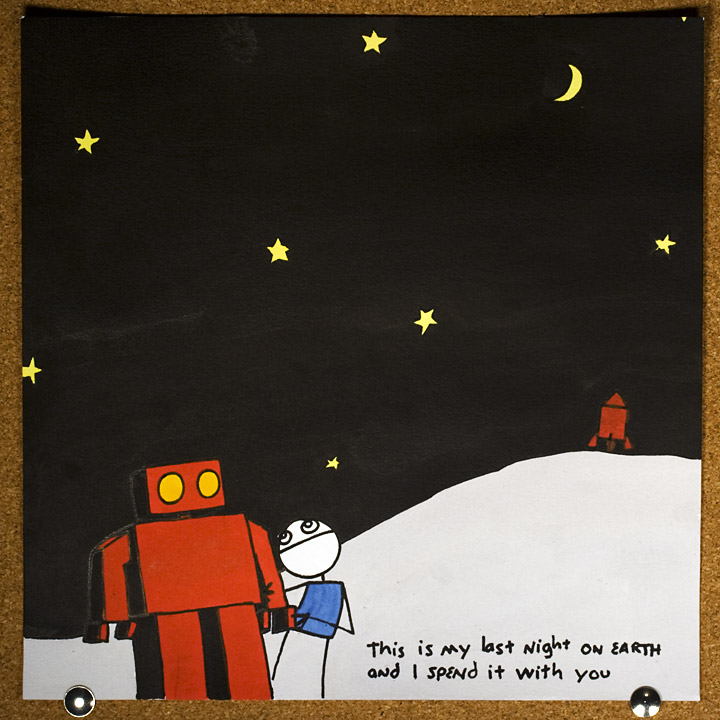 This is my last Night ON EARTH
and I SPEND it with you